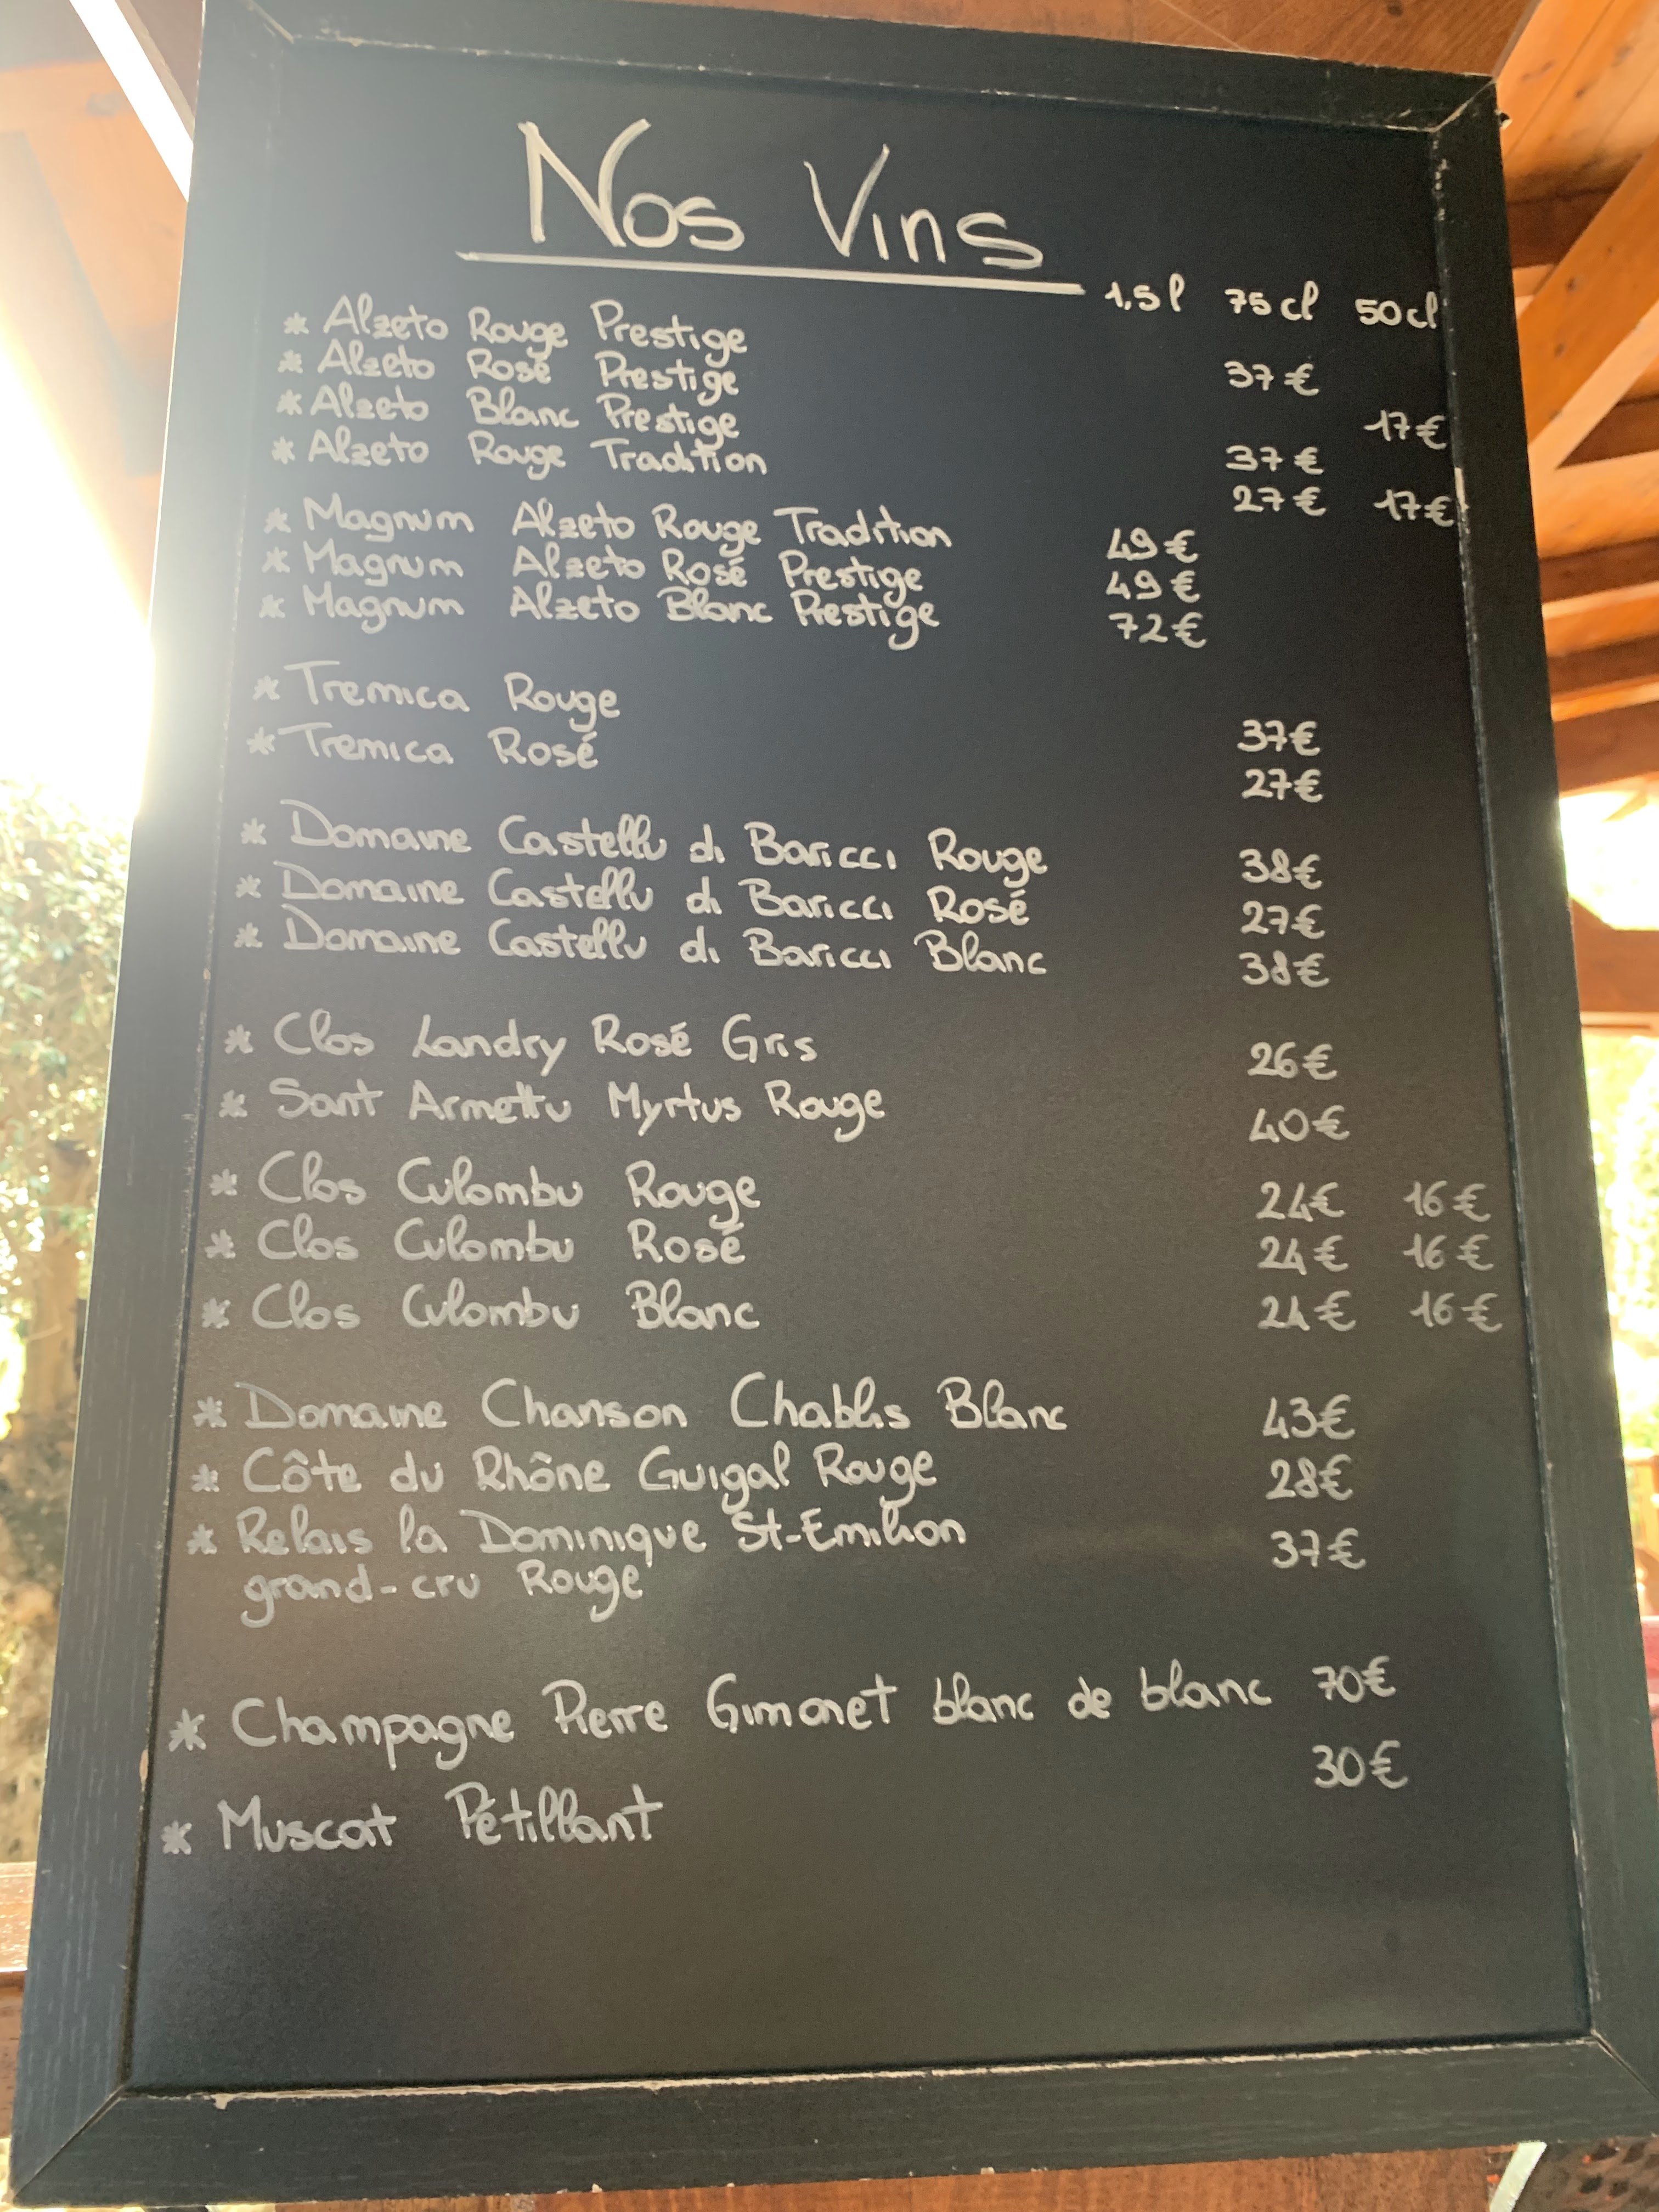 Nos Vins
1,5l 75cl 50cl
* Alzeto Rouge Prestige 37€
* Alzeto Rosé Prestige 17€
* Alzeto Blanc Prestige 37€
* Alzeto Rouge Tradition 27€ 17€
* Magnum Alzeto Rouge Tradition 49€
* Magnum Alzeto Rosé Prestige 49€
* Magnum Alzeto Blanc Prestige 72€
* Tremica Rouge 37€
* Tremica Rosé 27€
* Domaine Castellu di Baricci Rouge 38€
* Domaine Castellu di Baricci Rosé 27€
* Domaine Castellu di Baricci Blanc 38€
* Clos Landry Rosé Gris 26€
* Sant Armettu Myrtus Rouge 40€
* Clos Culombu Rouge 24€ 16€
* Clos Culombu Rosé 24€ 16€
* Clos Culombu Blanc 24€ 16€
* Domaine Chanson Chablis Blanc 43€
* Côte du Rhône Guigal Rouge 28€
* Relais la Dominique St-Emilion 37€
grand-cru Rouge
* Champagne Pierre Gimonet blanc de blanc 70€
* Muscat Pétillant 30€